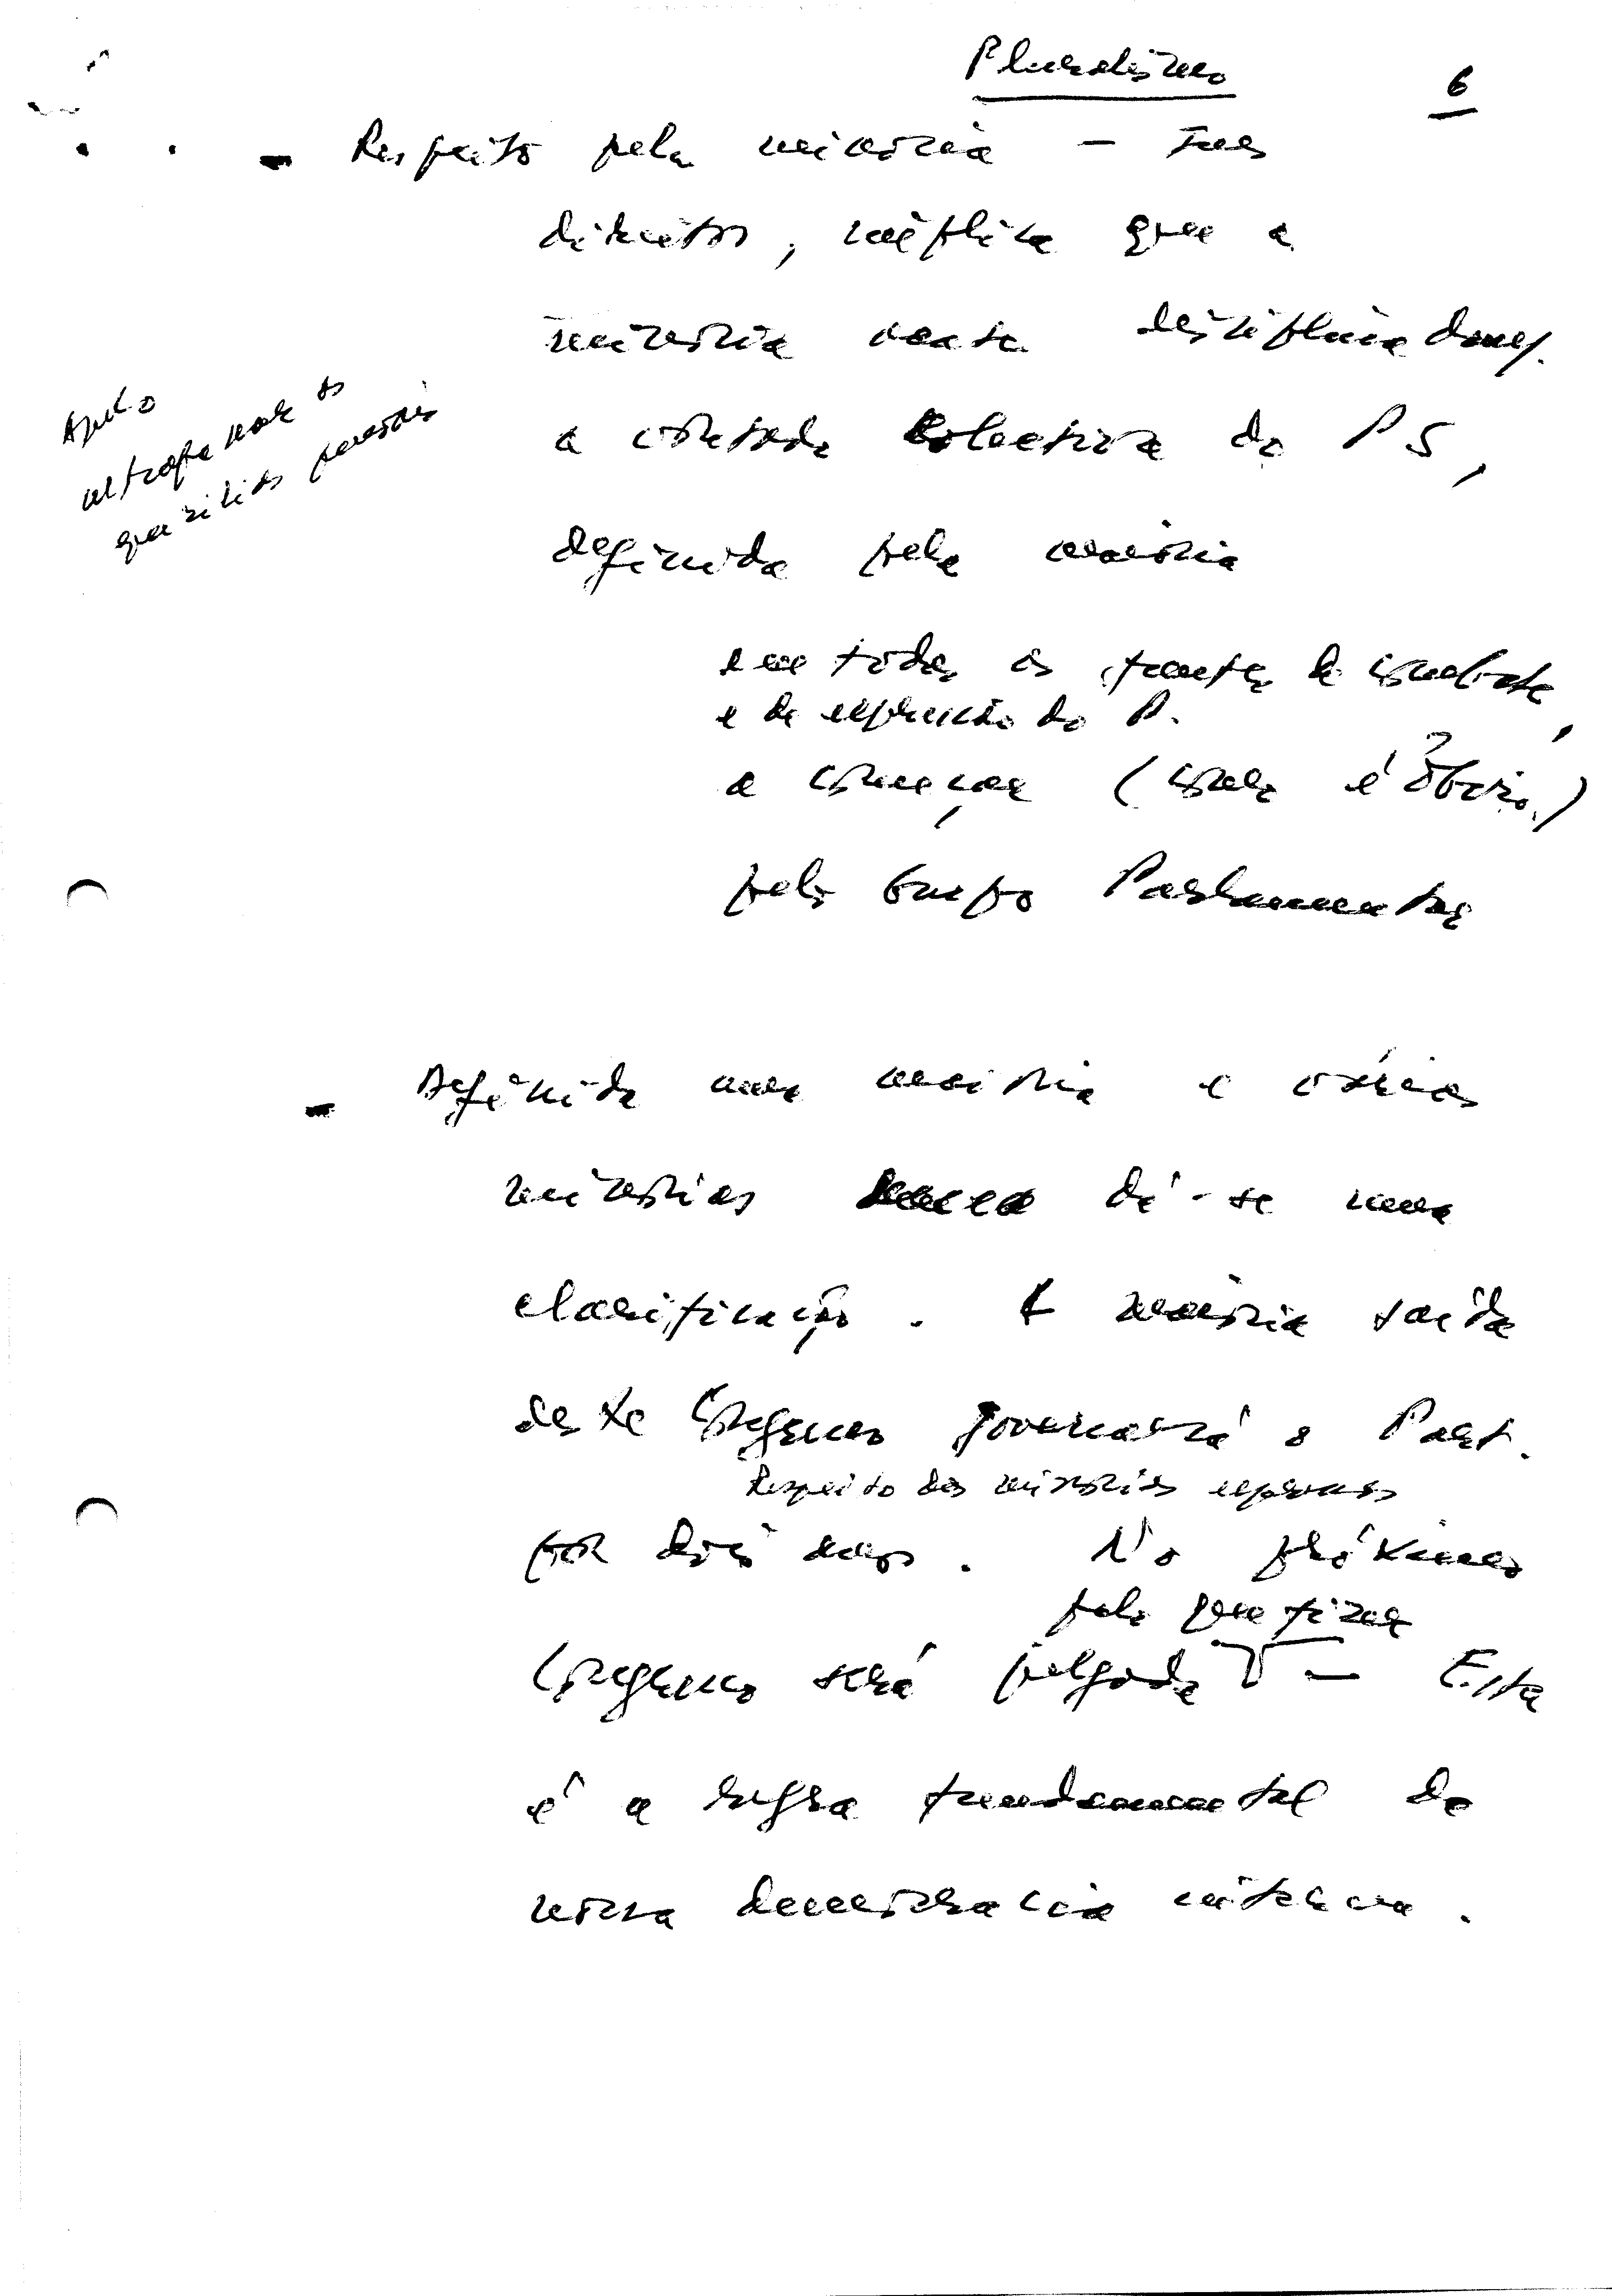 Pluralismo
6
- Respeito pela minoria - seus
direitos, implica que a
minoria acate disciplinadam.
a vontade colectiva do PS,
definida pela maioria
em todas as frentes de combate
e de expressão do P.
a começar (como é óbvio)
pelo Grupo Parlamentar
Apelo
ultrapassar os
quesílias pessoais
- Definida uma maioria e várias
minorias dá-se uma
clarificação. A maioria saída
deste Congresso governará o Part.
Respeito das minorias expressas
por dois anos. No próximo
pelo que fizer
Congresso será julgada - Esta
é a regra fundamental da
nossa democracia interna.